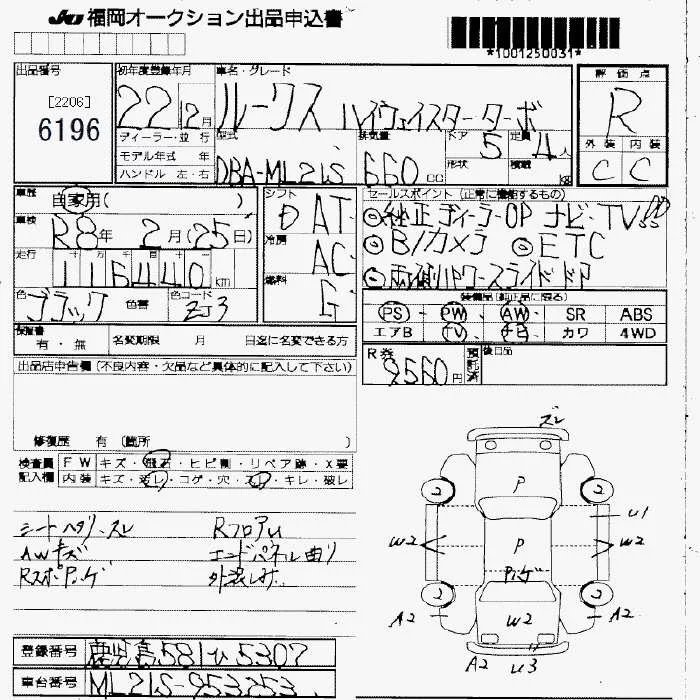 JU 福岡オークション出品申込書
*1001250031*
出品番号
[2206]
6196
初年度登録年月
22 12月
車名・グレード
ルークス ハイウェイスターターボ
評価点
R
外装 内装
C C
ディーラー・並行
モデル年式 年
ハンドル 左・右
型式
DBA-ML21S
排気量
660 CC
ドア
5
形状
定員
4人
積載
kg
車歴
自家用( )
車検
R8年 2月(25日)
走行
十万千百十一
116440km
色
ブラック
色替
色コード
ZJ3
シフト
D AT
冷房
AC
燃料
G
セールスポイント(正常に機能するもの)
◎純正ディーラーOP ナビ・TV
◎B/カメラ ◎ETC
◎両側パワースライドドア
装備品(純正品に限る)
PS・PW・AW・SR ABS
エアB TV・ナビ・カワ 4WD
保証書
有・無
名変期限 月 日迄に名変できる方
R券
9560円
預託済
後日品
出品店申告欄(不良内容・欠品など具体的に記入して下さい)
修復歴 有(箇所 )
検査員記入欄
FW キズ・飛石・ヒビ割・リペア跡・X要
内装 キズ・汚レ・コゲ・穴・スレ・キレ・破レ
シートヘタリ、スレ RフロアU
AWキズ エンドパネル曲り
スレ
P
2 2
U1
W2 P W2
2 2
A2 W2 A2
A2 U3
登録番号 鹿児島581ひ5307
車台番号 ML21S-953253